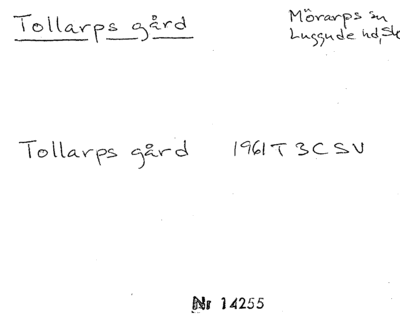 Tollarps gård
Mörarps sn
Luggude hd, Sk
Tollarps gård 1961 T 3C SV
Nr 14255